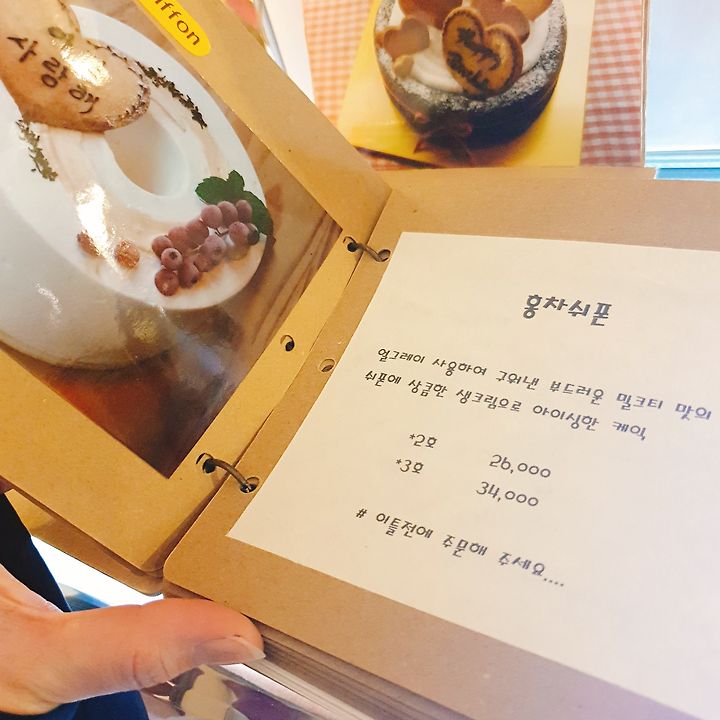 iffon
사랑해
홍차쉬폰
얼그레이 사용하여 구워낸 부드러운 밀크티 맛의
쉬폰에 상큼한 생크림으로 아이싱한 케익
*2호 26,000
*3호 34,000
# 이틀전에 주문해 주세요....